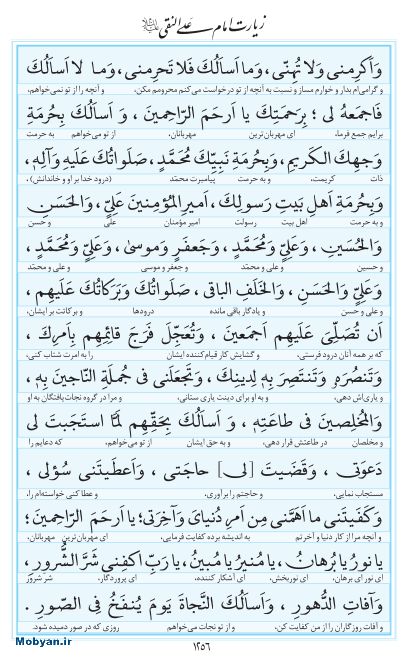 زیارت امام علی النقی علیه‌السلام
وَاَكرِمنى وَلا تُهِنّى، وَما اَساَلُكَ فَلا تَحرِمنى، وَمـا لا اَساَلُكَ
و گرامی‌ام بدار و خوارم مساز و نسبت به آنچه از تو درخواست می‌کنم محرومم مکن، و آنچه را از تو نمی‌خواهم،
فَاجمَعهُ لى ؛ بِرَحمَتِكَ يا اَرحَمَ الرّاحِمينَ ، وَ اَساَلُكَ بِحُرمَةِ
برایم جمع فرما، ای مهربان‌ترین مهربانان، از تو می‌خواهم به حرمت
وَجهِكَ الكَريمِ، وَبِحُرمَةِ نَبِيِّكَ مُحَمَّدٍ، صَلَواتُكَ عَلَيهِ وَآلِهِ،
ذات کریمت، و به حرمت پیامبرت محمّد (درود خدا بر او و خاندانش)،
وَبِحُرمَةِ اَهلِ بَيتِ رَسولِكَ، اَميرِ المُؤمِنينَ عَلِيٍّ، وَالحَسَنِ
و به حرمت اهل بیت رسولت، امیر مؤمنان علی و حسن
وَالحُسَينِ، وَعَلِيٍّ وَمُحَمَّدٍ، وَجَعفَرٍ وَموسىٰ، وَعَلِيٍّ وَمُحَمَّدٍ،
و حسین و علی و محمّد، و جعفر و موسی و علی و محمّد
وَعَلِيٍّ وَالحَسَنِ ، وَالخَلَفِ الباقى ، صَلَواتُكَ وَبَرَكاتُكَ عَلَيهِم ،
و علی و حسن و یادگار باقی مانده درودها و برکاتت بر ایشان،
اَن تُصَلِّىَ عَلَيهِم اَجمَعينَ ، وَتُعَجِّلَ فَرَجَ قائِمِهِم بِاَمرِكَ ،
که بر همه آنان درود فرستی، و گشایش کار قیام‌کننده ایشان را به امرت شتاب کنی،
وَتَنصُرَهُ وَتَنتَصِرَ بِهِ لِدينِكَ، وَتَجعَلَنى فى جُملَةِ النّاجينَ بِهِ،
و یاری‌اش دهی، و به او برای دینت یاری ستانی، و مرا در گروه نجات‌یافتگان به او
وَالمُخلِصينَ فى طاعَتِهِ، وَ اَساَلُكَ بِحَقِّهِم لَمَّا استَجَبتَ لى
و مخلصان در طاعتش قرار دهی، و به حق ایشان از تو می‌خواهم، که دعایم را
دَعوَتى ، وَقَضَيتَ [لى] حاجَتى ، وَاَعطَيتَنى سُؤلى ،
مستجاب نمایی، و حاجتم را برآوری، و عطا کنی خواسته‌ام را،
وَكَفَيتَنى ما اَهَمَّنى مِن اَمرِ دُنياىَ وَآخِرَتى؛ يا اَرحَمَ الرّاحِمينَ؛
و آنچه مرا از کار دنیا و آخرتم به اندیشه برده کفایت فرمایی، ای مهربان‌ترین مهربانان،
يا نورُ يا بُرهانُ، يا مُنيرُ يا مُبينُ، يا رَبِّ اكفِنى شَرَّ الشُّرورِ،
ای نور ای برهان، ای نوربخش، ای آشکار کننده، ای پروردگار، شرّ شرور
وَآفاتِ الدُّهورِ، وَاَساَلُكَ النَّجاةَ يَومَ يُنفَخُ فِى الصّورِ .
و آفات روزگاران را از من کفایت کن، و از تو نجات می‌خواهم روزی که در صور دمیده شود.
۱۲۵۶
Mobyan.ir